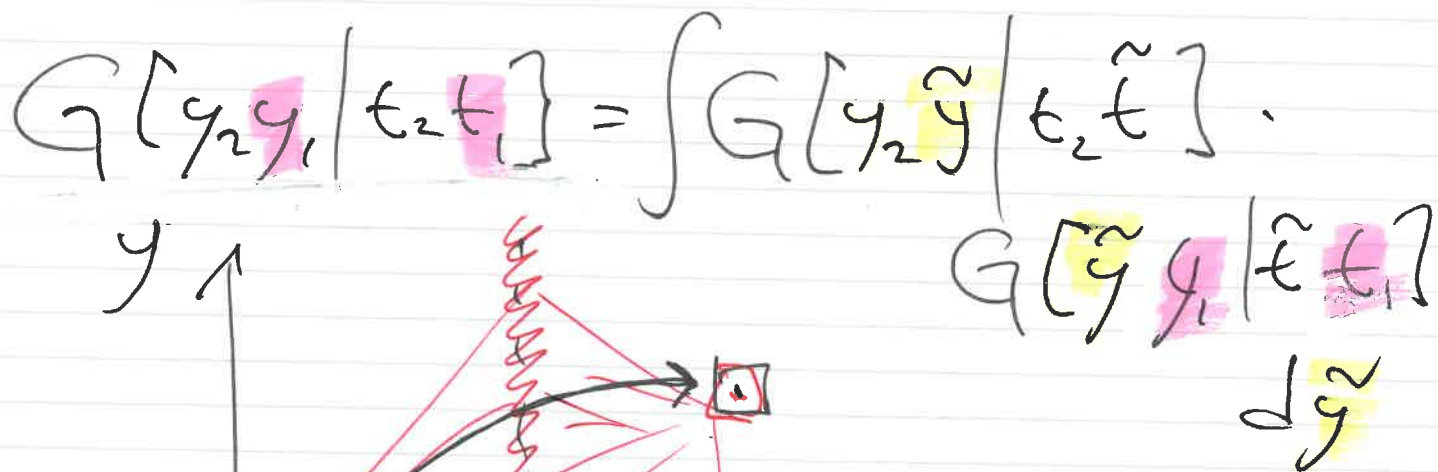 G[y₂y₁|t₂t₁] = ∫G[y₂ỹ|t₂t̃] ·
G[ỹ y₁|t̃ t₁]
dỹ
y